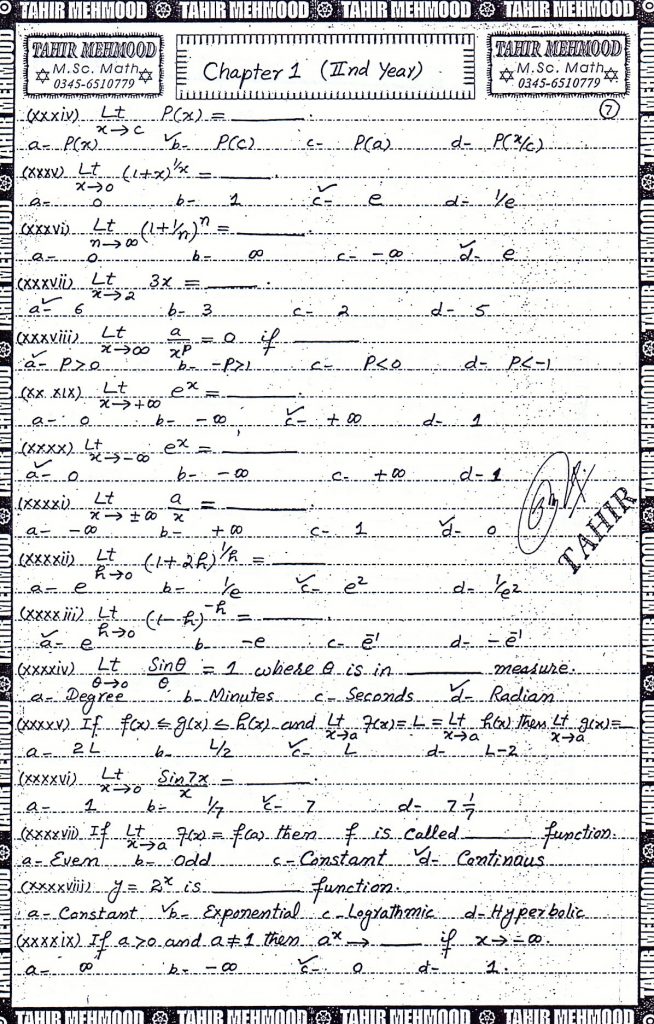 TAHIR MEHMOOD TAHIR MEHMOOD TAHIR MEHMOOD TAHIR MEHMOOD
TAHIR MEHMOOD
M.Sc. Math
0345-6510779
Chapter 1 (IInd Year)
TAHIR MEHMOOD
M.Sc. Math
0345-6510779
7
(xxxiv) Lt x→c P(x) = ______.
a- P(x) ✓b- P(c) c- P(a) d- P(x/c)
(xxxv) Lt x→0 (1+x)^1/x = ______.
a- 0 b- 1 ✓c- e d- 1/e
(xxxvi) Lt n→∞ (1+1/n)^n = ______.
a- 0 b- ∞ c- -∞ ✓d- e
(xxxvii) Lt x→2 3x = ______.
✓a- 6 b- 3 c- 2 d- 5
(xxxviii) Lt x→∞ a/x^p = 0 if ______
✓a- P>0 b- -P>1 c- P<0 d- P<-1
(xx xix) Lt x→+∞ e^x = ______
a- 0 b- -∞ ✓c- +∞ d- 1
(xxxx) Lt x→-∞ e^x = ______
✓a- 0 b- -∞ c- +∞ d- 1
(xxxxi) Lt x→±∞ a/x = ______
a- -∞ b- +∞ c- 1 ✓d- 0
TAHIR
(xxxxii) Lt h→0 (1+2h)^1/h = ______
a- e b- 1/e ✓c- e² d- 1/e²
(xxxxiii) Lt h→0 (1-h)^-h = ______.
✓a- e b- -e c- e^-1 d- -e^-1
(xxxxiv) Lt θ→0 Sinθ/θ = 1 where θ is in ______ measure.
a- Degree b- Minutes c- Seconds ✓d- Radian
(xxxxv) If f(x) ≤ g(x) ≤ h(x) and Lt x→a f(x) = L = Lt x→a h(x) then Lt x→a g(x) = __
a- 2L b- L/2 ✓c- L d- L-2
(xxxxvi) Lt x→0 Sin7x/x = ______.
a- 1 b- 1/7 ✓c- 7 d- 7 1/7
(xxxxvii) If Lt x→a f(x) = f(a) then f is called ______ function.
a- Even b- Odd c- Constant ✓d- Continous
(xxxxviii) y = 2^x is ______ function.
a- Constant ✓b- Exponential c- Lograthmic d- Hyperbolic
(xxxxix) If a>0 and a≠1 then a^x → ____ if x→-∞.
a- ∞ b- -∞ ✓c- 0 d- 1.
TAHIR MEHMOOD TAHIR MEHMOOD TAHIR MEHMOOD TAHIR MEHMOOD